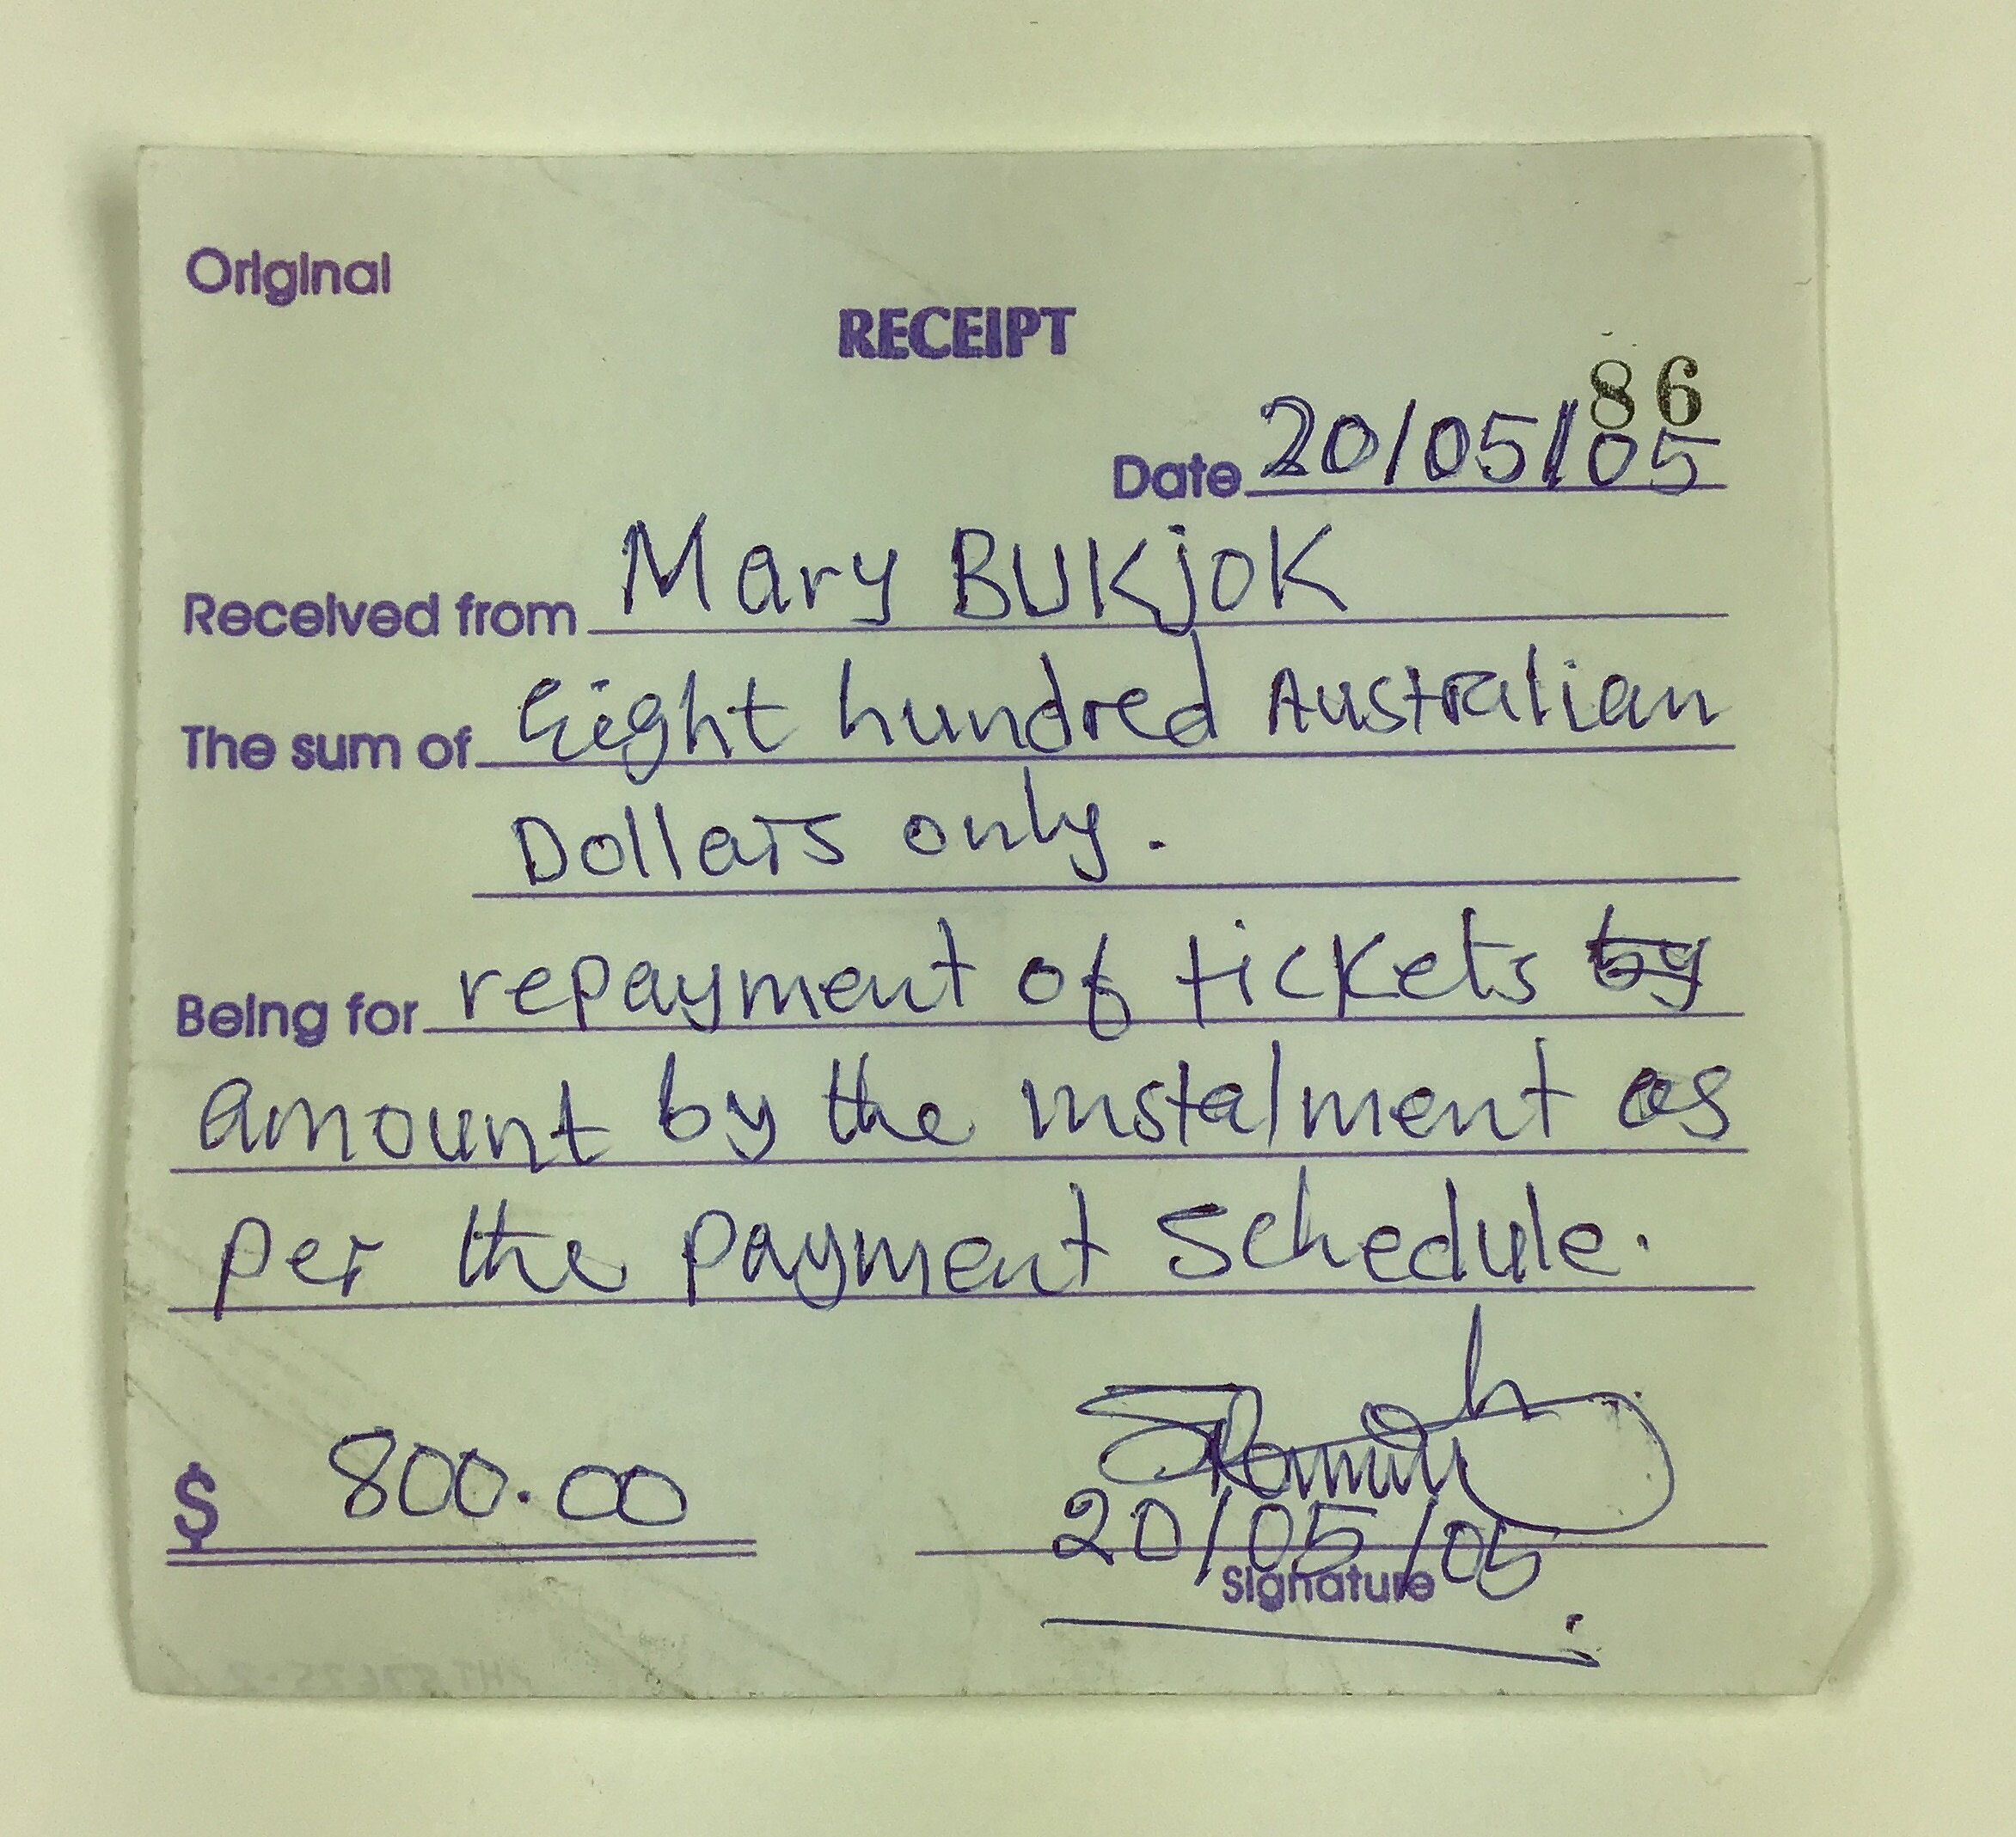 Original
RECEIPT
86
Date 20/05/05
Received from Mary BUKjOK
The sum of Eight hundred Australian
Dollars only.
Being for repayment of tickets by
amount by the instalment as
per the payment schedule.
$ 800.00
20/05/05
Signature